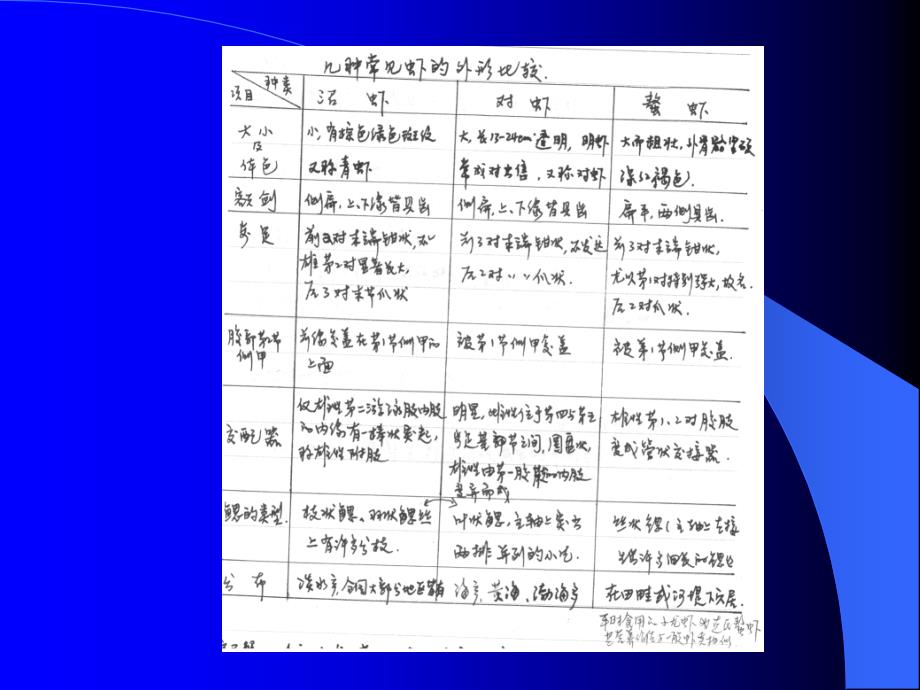 几种常见虾的外形比较.
种类
项目
沼 虾
对 虾
螯 虾
大小
及
体色
小,有棕色绿色斑纹
又称青虾
大,长13-24cm透明,明虾
常成对出售,又称对虾
大而粗壮,外骨骼坚硬
深红褐色.
额剑
侧扁,上、下缘皆具齿
侧扁,上、下缘皆具齿
扁平,两侧具齿.
步足
前2对末端钳状,
雄第2对显著长大,
后3对末节爪状
前3对末端钳状,不发达
后2对〃〃爪状.
前3对末端钳状,
尤以第1对特别强大,故名.
后2对爪状.
腹部第2节
侧甲
前缘覆盖在第1节侧甲的
上面
被第1节侧甲覆盖
被第1节侧甲覆盖.
交配器
仅雄性第二游泳肢内肢
的内缘有一棒状突起,
称雄性附肢
明显,雌性位于第四与第五
步足基部节之间,圆盘状,
雄性由第一腹肢的内肢
变异而成
雄性第1、2对腹肢
变成管状交接器.
鳃的类型.
枝状鳃、羽状鳃丝
上有许多分枝.
叶状鳃,主轴上突出
两排并列的小片.
丝状鳃(主轴上直接
生出许多细长的鳃丝
分布
淡水产,全国大部分地区皆有
海产,黄海、渤海产
在田畦或河堤下穴居.
平时食用的小龙虾也是螯虾